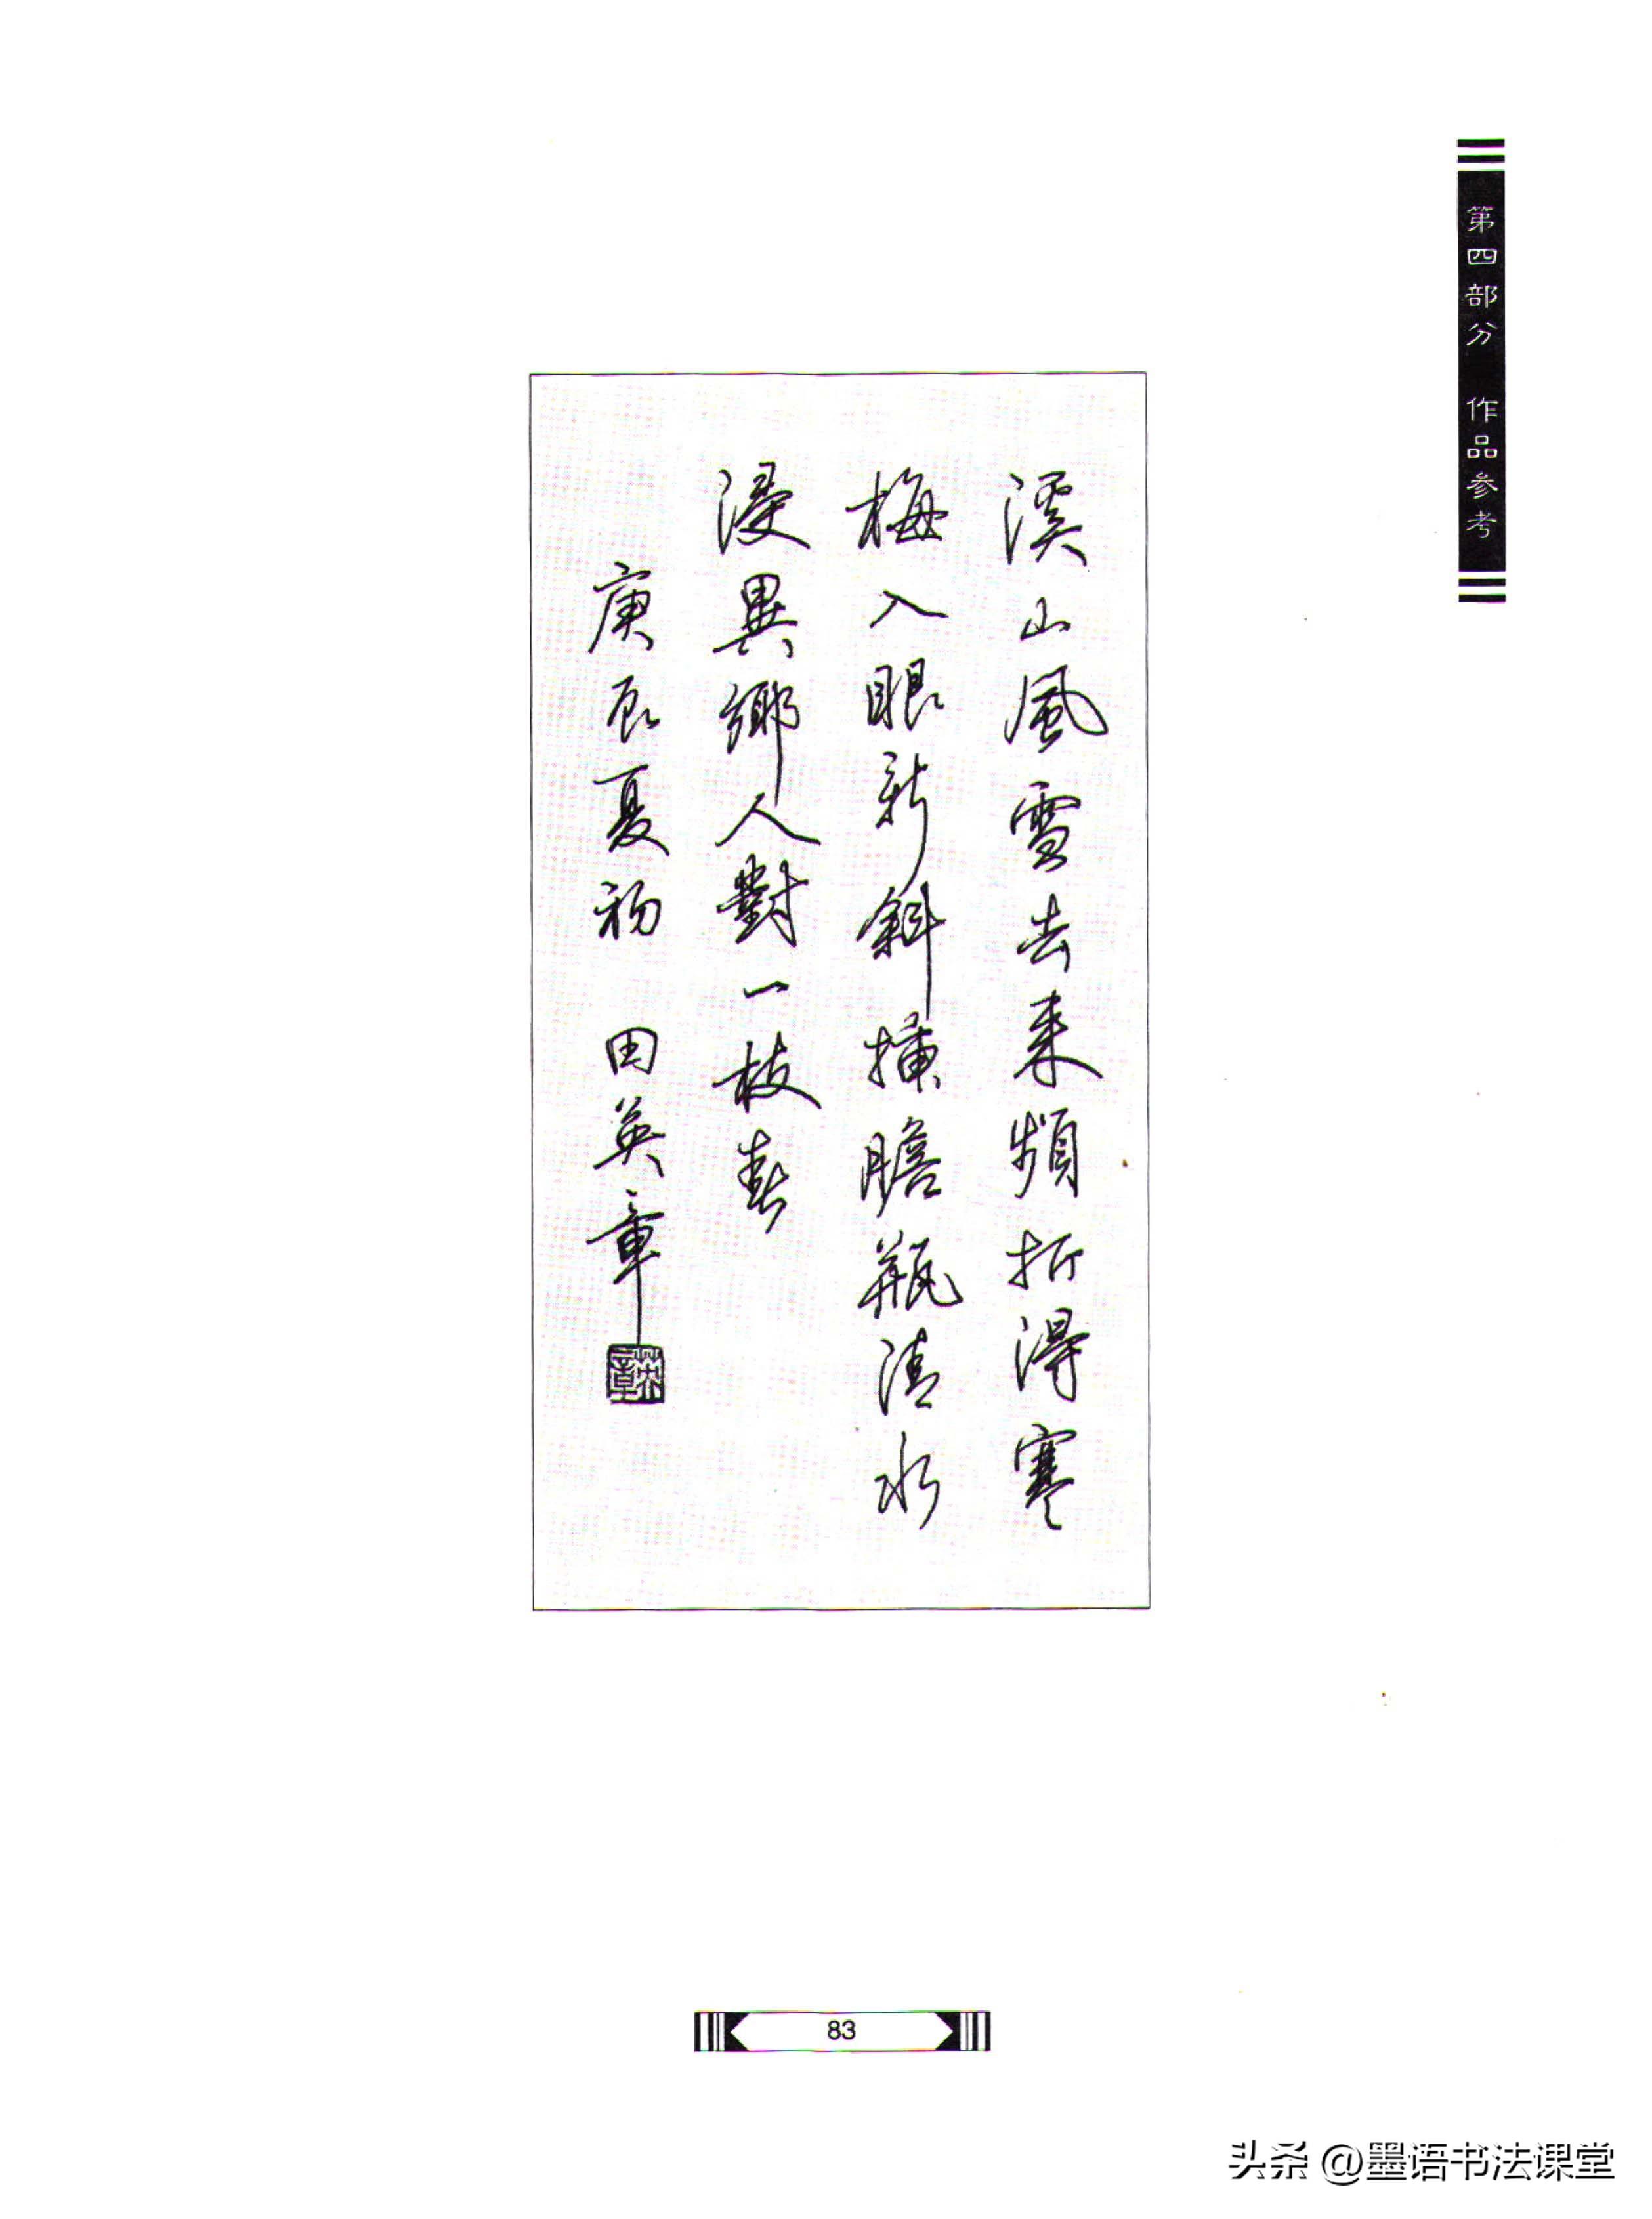 第四部分 作品参考
溪山風雪去来頻折得寒
梅入眼新斜插膽瓶清水
浸異鄉人對一枝春
庚辰夏初 田英章
英章
83
头条 @墨语书法课堂